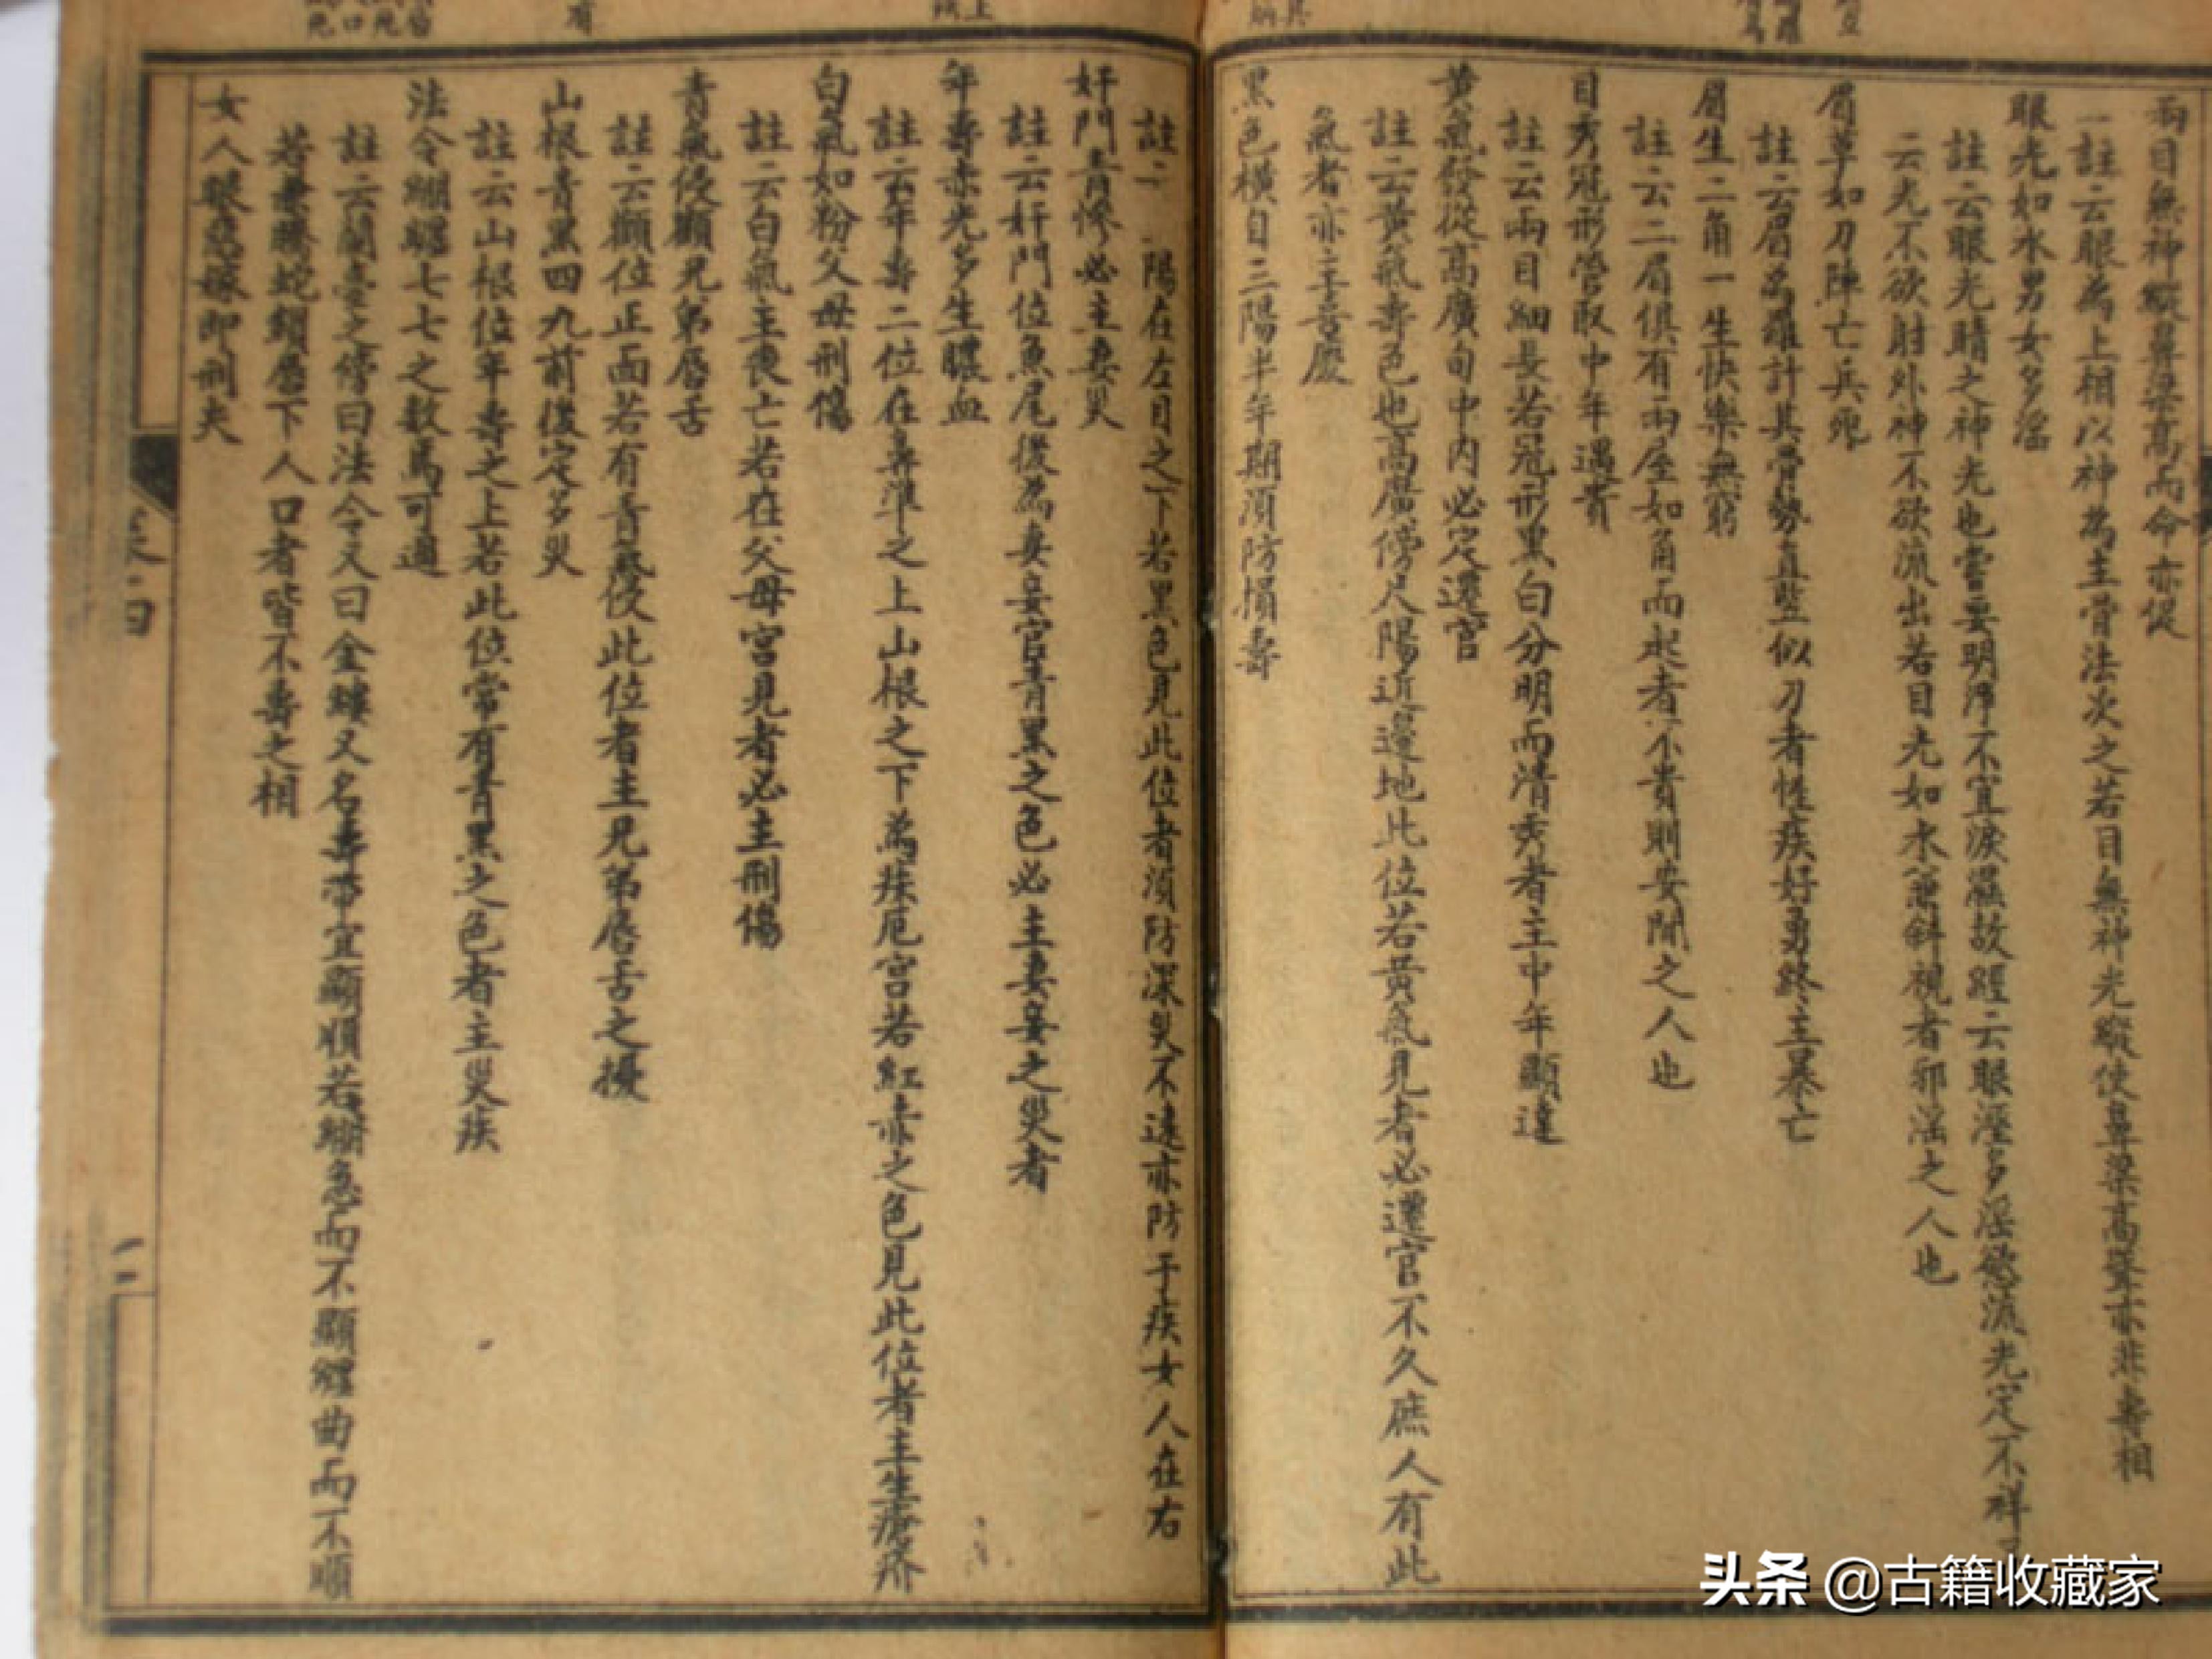 兩目無神縱鼻梁高而命亦促
註云眼為上相以神為主骨法次之若目無神光縱使鼻梁高聳亦非壽相
眼光如水男女多淫
註云眼光睛之神光也要明淨不宜淚濕故經云眼溼多淫慾流光定不祥
云光不欲射外神不欲流出若目光如水兼斜視者邪淫之人也
眉草如刀陣亡兵死
註云眉為羅計其骨勢直竪似刀者性疾好勇終主暴亡
眉生二角一生快樂無窮
註云二眉俱有兩尾如角而起者不貴則安閒之人也
目秀冠形管取中年遇貴
註云兩目細長若冠形黑白分明而清秀者主中年顯達
黃氣發從高廣旬中內必定遷官
註云黃氣壽色也高廣傍尺陽近邊地此位若黃氣見者必遷官不久庶人有此
氣者亦主喜慶
黑色橫自三陽半年期須防損壽
註 陽在左目之下若黑色見此位者須防深災不遠亦防于疾女人在右
奸門青慘必主妻災
註云奸門位魚尾後為妻妾宮青黑之色必主妻妾之災者
年壽赤光多生膿血
註云年壽二位在鼻準之上山根之下為疾厄宮若紅赤之色見此位者主生瘡疥
白氣如粉父母刑傷
註云白氣主喪亡若在父母宮見者必主刑傷
青氣侵顴兄弟唇舌
註云顴位正面若有青氣侵此位者主兄弟唇舌之擾
山根青黑四九前後定多災
註云山根位年壽之上若此位常有青黑之色者主災疾
法令繃纏七七之數焉可過
註云蘭臺之傍曰法令又曰金縷又名壽帶宜顯順若繃急而不顯纏曲而不順
若兼螣蛇鎖唇下人口者皆不壽之相
女人眼惡嫁即刑夫
卷四
二
头条 @古籍收藏家